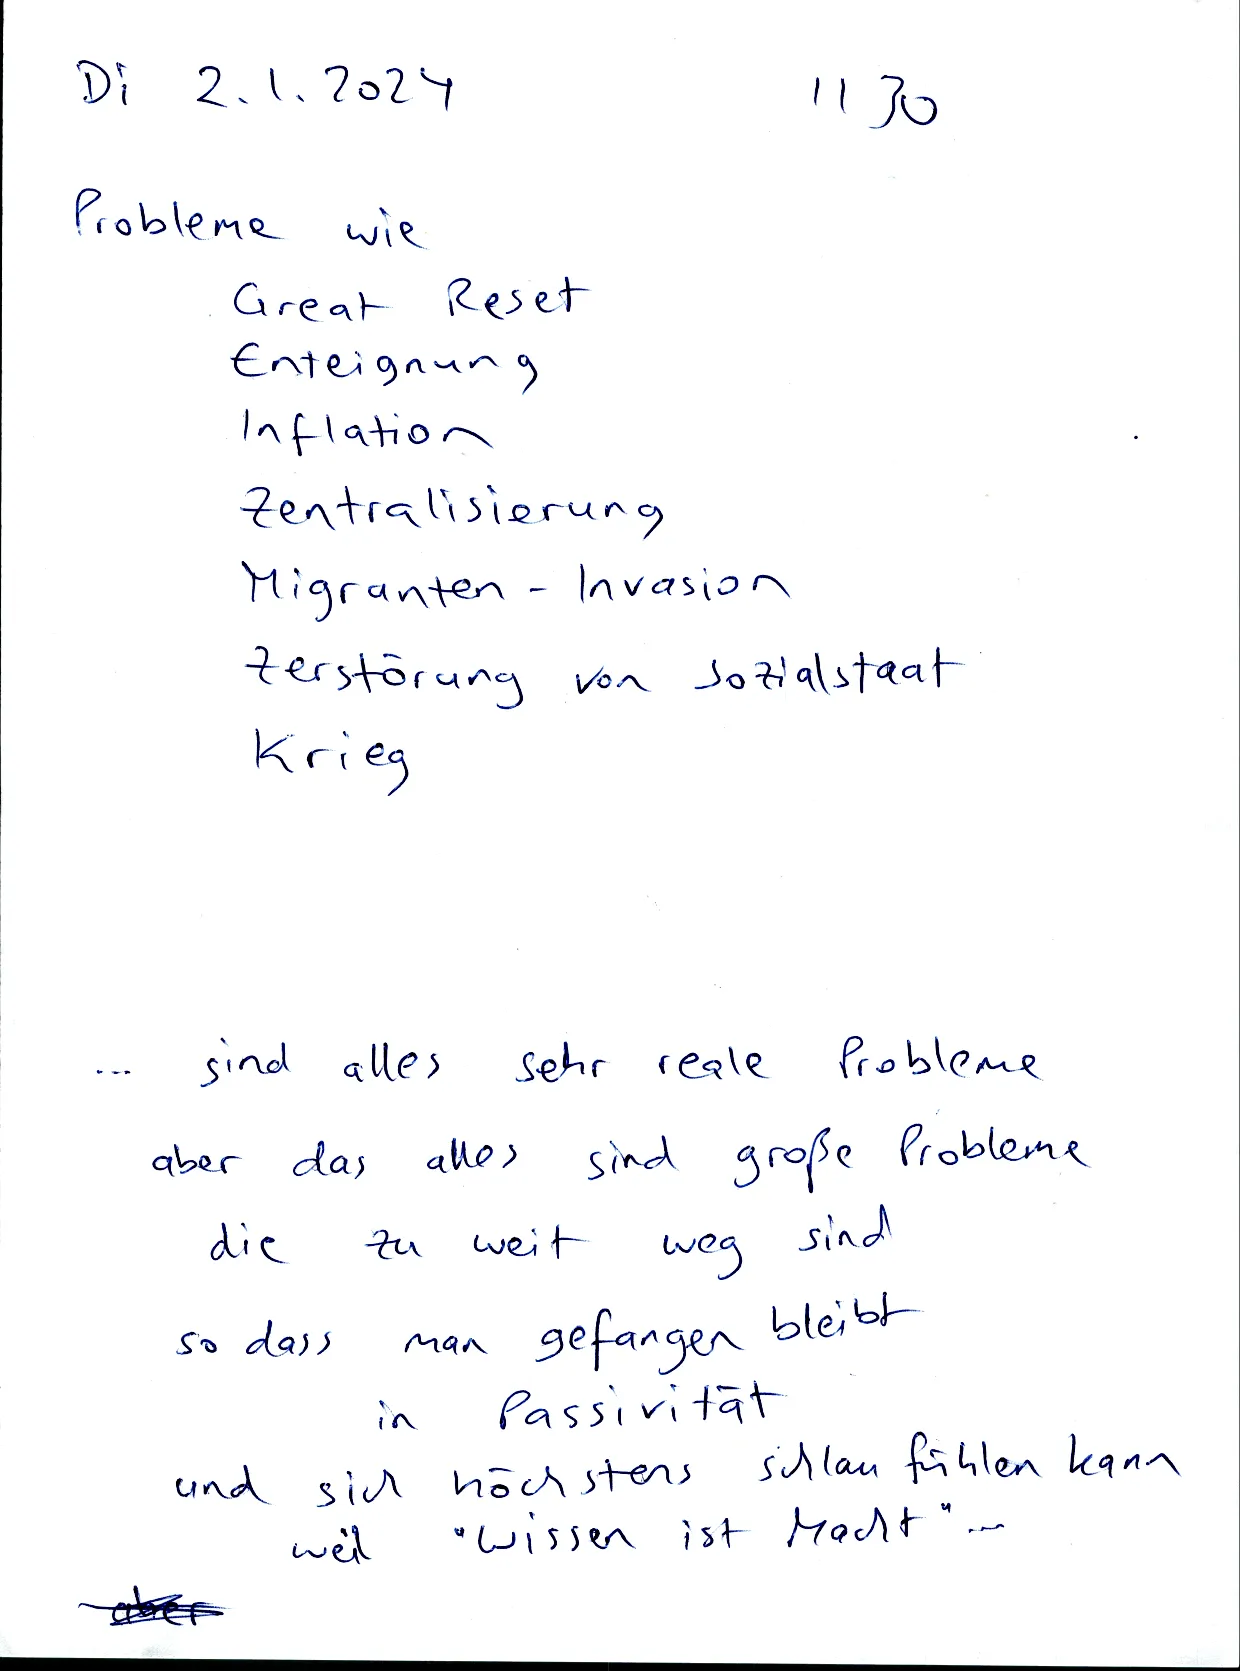 Di 2.1.2024 11 30
Probleme wie
Great Reset
Enteignung
Inflation
Zentralisierung
Migranten - Invasion
Zerstörung von Sozialstaat
Krieg
... sind alles sehr reale Probleme
aber das alles sind große Probleme
die zu weit weg sind
so dass man gefangen bleibt
in Passivität
und sich höchstens schlau fühlen kann
weil "Wissen ist Macht" ...
aber